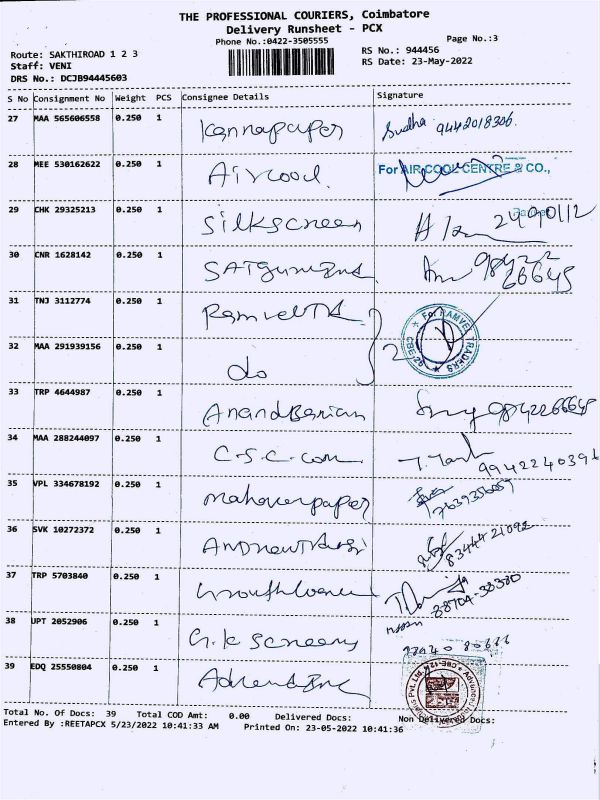 THE PROFESSIONAL COURIERS, Coimbatore
Delivery Runsheet - PCX
Phone No.:0422-3505555
Page No.:3
Route: SAKTHIROAD 1 2 3
RS No.: 944456
Staff: VENI
RS Date: 23-May-2022
DRS No.: DCJB94445603
S No Consignment No Weight PCS Consignee Details Signature
27 MAA 565606558 0.250 1 Kannapaper Sudha 9442018306.
28 MEE 530162622 0.250 1 Aircool. For AIR COOL CENTRE & CO.,
29 CHK 29325213 0.250 1 Silkscreen 2490112
30 CNR 1628142 0.250 1 98422 66645
31 TNJ 3112774 0.250 1 For RAMVEL TRADERS CBE-26
32 MAA 291939156 0.250 1 do 2
33 TRP 4644987 0.250 1 9842266645
34 MAA 288244097 0.250 1 C.S.C. com 9942240396
35 VPL 334678192 0.250 1 7639356057
36 SVK 10272372 0.250 1 8344421092
37 TRP 5703840 0.250 1 88704-38380
38 UPT 2052906 0.250 1 G.K Screens
39 EDQ 25550804 0.250 1
Total No. Of Docs: 39 Total COD Amt: 0.00 Delivered Docs: Non Delivered Docs:
Entered By :REETAPCX 5/23/2022 10:41:33 AM Printed On: 23-05-2022 10:41:36